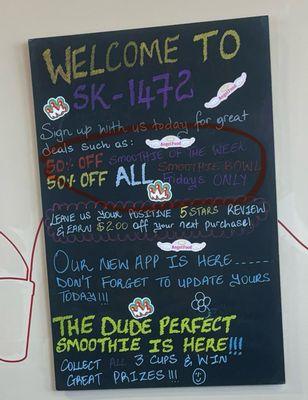 WELCOME TO
SK-1472
Sign up with us today for great
deals such as:
50% OFF SMOOTHIE OF THE WEEK
50% OFF ALL SMOOTHIE BOWL
Fridays ONLY
LEAVE US YOUR POSITIVE 5 STARS REVIEW
& EARN $2.00 off your next purchase!
OUR NEW APP IS HERE.....
DON'T FORGET TO UPDATE YOURS
TODAY!!!
THE DUDE PERFECT
SMOOTHIE IS HERE!!!
COLLECT ALL 3 CUPS & WIN
GREAT PRIZES!!!
Angel Food
Angel Food
Angel Food